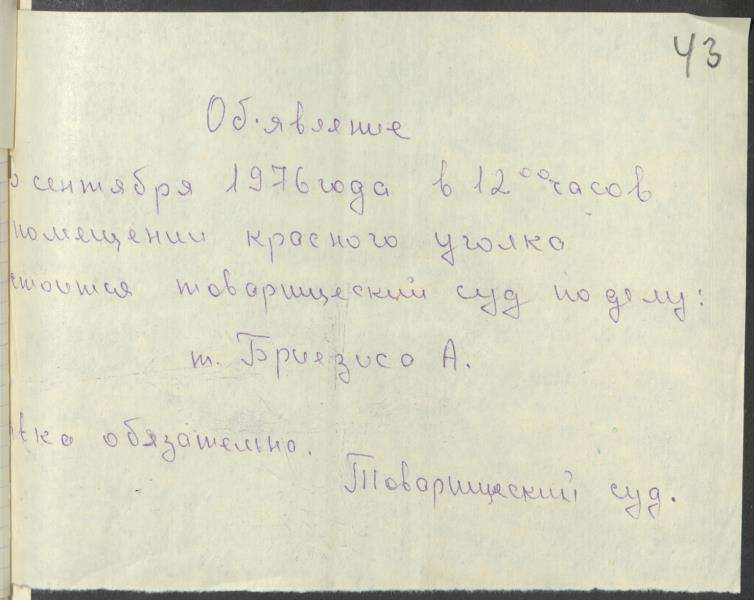 43
Об'явление
сентября 1976 года в 12⁰⁰ часов
помещении красного уголка
стоится товарищеский суд по делу:
т. Бриезиса А.
вка обязательна.
Товарищеский суд.